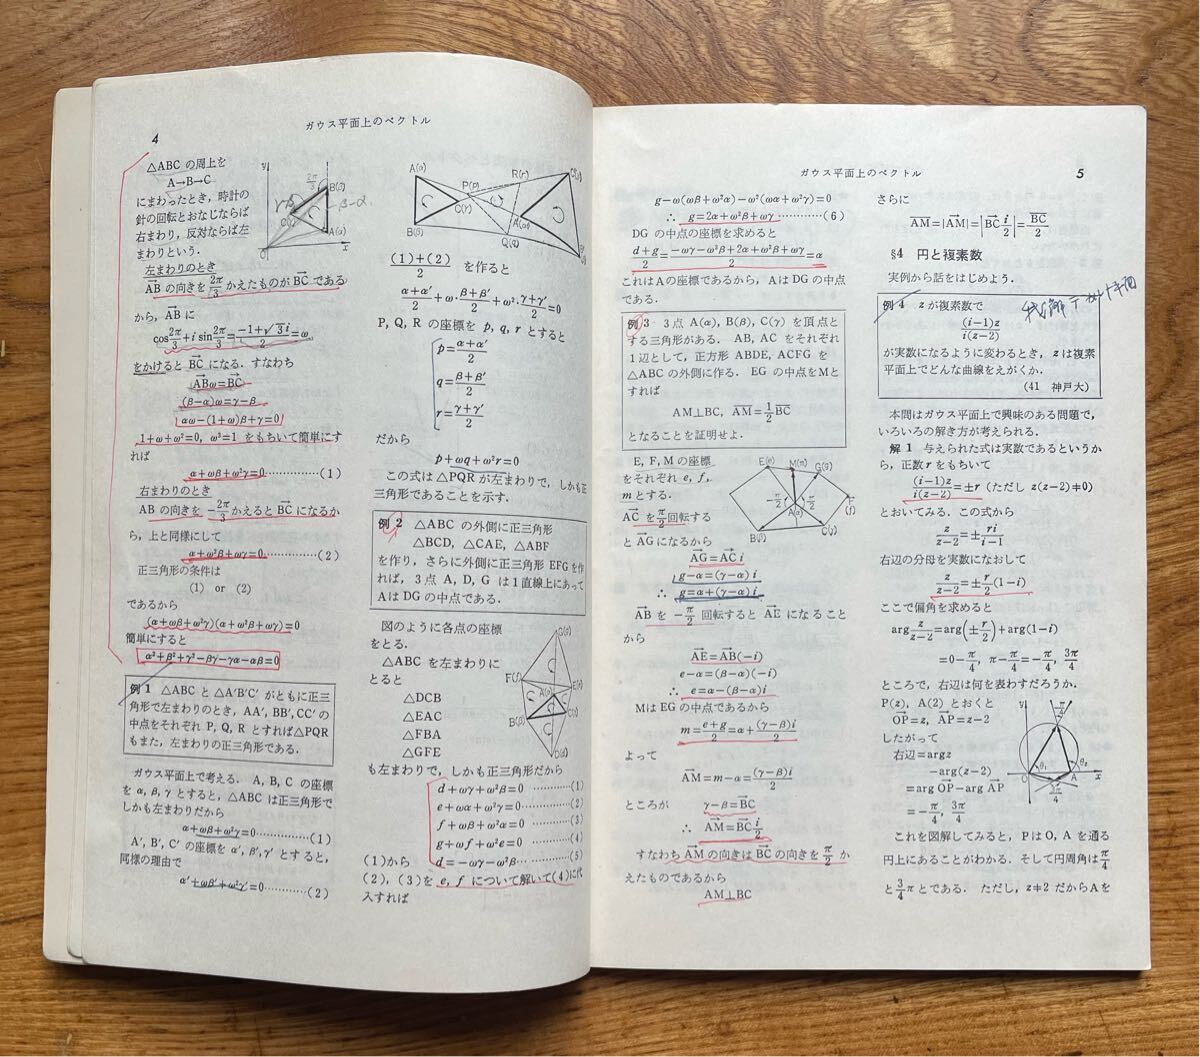 4
ガウス平面上のベクトル
△ABC の周上を
A→B→C
にまわったとき，時計の
針の回転とおなじならば
右まわり，反対ならば左
まわりという．
左まわりのとき
ABの向きを2π/3かえたものがBCである
から，ABに
cos2π/3+i sin2π/3=(-1+√3 i)/2=ω
をかけると BC になる．すなわち
ABω=BC
(β-α)ω=γ-β
αω-(1+ω)β+γ=0
1+ω+ω²=0, ω³=1 をもちいて簡単にす
れば
α+ωβ+ω²γ=0············(1)
右まわりのとき
AB の向きを -2π/3 かえると BC になるか
ら，上と同様にして
α+ω²β+ωγ=0············(2)
正三角形の条件は
(1) or (2)
であるから
(α+ωβ+ω²γ)(α+ω²β+ωγ)=0
簡単にすると
α²+β²+γ²-βγ-γα-αβ=0
例1 △ABC と △A′B′C′ がともに正三
角形で左まわりのとき，AA′, BB′, CC′ の
中点をそれぞれ P, Q, R とすれば△PQR
もまた，左まわりの正三角形である．
ガウス平面上で考える．A, B, C の座標
を α, β, γ とすると，△ABC は正三角形で
しかも左まわりだから
α+ωβ+ω²γ=0············(1)
A′, B′, C′ の座標を α′, β′, γ′ とすると，
同様の理由で
α′+ωβ′+ω²γ′=0············(2)
((1)+(2))/2 を作ると
(α+α′)/2+ω·(β+β′)/2+ω²·(γ+γ′)/2=0
P, Q, R の座標を p, q, r とすると
p=(α+α′)/2
q=(β+β′)/2
r=(γ+γ′)/2
だから
p+ωq+ω²r=0
この式は△PQR が左まわりで，しかも正
三角形であることを示す．
例2 △ABC の外側に正三角形
△BCD, △CAE, △ABF
を作り，さらに外側に正三角形 EFG を作
れば，3点 A, D, G は1直線上にあって
A は DG の中点である．
図のように各点の座標
をとる．
△ABC を左まわりに
とると
△DCB
△EAC
△FBA
△GFE
も左まわりで，しかも正三角形だから
d+ωγ+ω²β=0············(1)
e+ωα+ω²γ=0············(2)
f+ωβ+ω²α=0············(3)
g+ωf+ω²e=0············(4)
(1)から d=-ωγ-ω²β············(5)
(2), (3)を e, f について解いて(4)に代
入すれば
ガウス平面上のベクトル
5
g-ω(ωβ+ω²α)-ω²(ωα+ω²γ)=0
∴ g=2α+ω²β+ωγ············(6)
DG の中点の座標を求めると
(d+g)/2=(-ωγ-ω²β+2α+ω²β+ωγ)/2=α
これはAの座標であるから，AはDGの中点
である．
例3 3点 A(α), B(β), C(γ) を頂点と
する三角形がある．AB, AC をそれぞれ
1辺として，正方形 ABDE, ACFG を
△ABC の外側に作る．EG の中点をMと
すれば
AM⊥BC, AM=1/2 BC
となることを証明せよ．
E, F, M の座標
をそれぞれ e, f,
m とする．
AC を π/2 回転する
と AG になるから
AG=AC i
g-α=(γ-α)i
∴ g=α+(γ-α)i
AB を -π/2 回転すると AE になること
から
AE=AB(-i)
e-α=(β-α)(-i)
∴ e=α-(β-α)i
M は EG の中点であるから
m=(e+g)/2=α+(γ-β)i/2
よって
AM=m-α=(γ-β)i/2
ところが γ-β=BC
∴ AM=BC i/2
すなわち AM の向きは BC の向きを π/2 か
えたものであるから
AM⊥BC
さらに
AM=|AM|=|BC i/2|=BC/2
§4 円と複素数
実例から話をはじめよう．
例4 z が複素数で
(i-1)z/i(z-2)
が実数になるように変わるとき，z は複素
平面上でどんな曲線をえがくか．
(41 神戸大)
本問はガウス平面上で興味のある問題で，
いろいろの解き方が考えられる．
解1 与えられた式は実数であるというか
ら，正数 r をもちいて
(i-1)z/i(z-2)=±r (ただし z(z-2)≠0)
とおいてみる．この式から
z/(z-2)=±ri/(i-1)
右辺の分母を実数になおして
z/(z-2)=±r/2(1-i)
ここで偏角を求めると
arg z/(z-2)=arg(±r/2)+arg(1-i)
=0-π/4, π-π/4=-π/4, 3π/4
ところで，右辺は何を表わすだろうか．
P(z), A(2) とおくと
OP=z, AP=z-2
したがって
右辺=argz
-arg(z-2)
=arg OP-arg AP
=-π/4, 3π/4
これを図解してみると，P は O, A を通る
円上にあることがわかる．そして円周角はπ/4
と3/4πとである．ただし，z≠2 だからAを